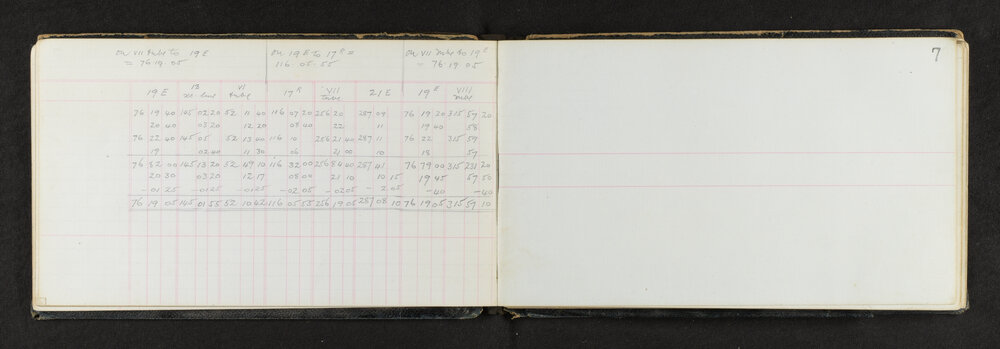 on VII tube to 19 E on 19 E to 17 R = on VII tube to 19 E
= 76 19. 05 116. 05. 55 = 76. 19. 05
7
19 E 18 VI tube 17 R VII tube 21 E 19 E VIII tube
76 19 40 145 02 20 52 11 40 116 07 20 256 20 287 09 76 19 20 315 57 20
20 40 03 20 12 20 08 40 22 11 19 40 58
76 22 40 145 05 52 13 00 116 10 256 21 40 287 11 76 22 315 59
19 02 40 11 30 06 21 00 10 18 57
76 82 00 145 13 20 52 49 10 116 32 00 256 84 40 287 41 76 79 00 315 231 20
20 30 03 20 12 17 08 00 21 10 10 15 19 45 57 50
- 01 25 - 01 25 - 01 25 - 02 05 - 02 05 - 2 05 - 40 - 40
76 19 05 145 01 55 52 10 42 116 05 55 256 19 05 287 08 10 76 19 05 315 57 10